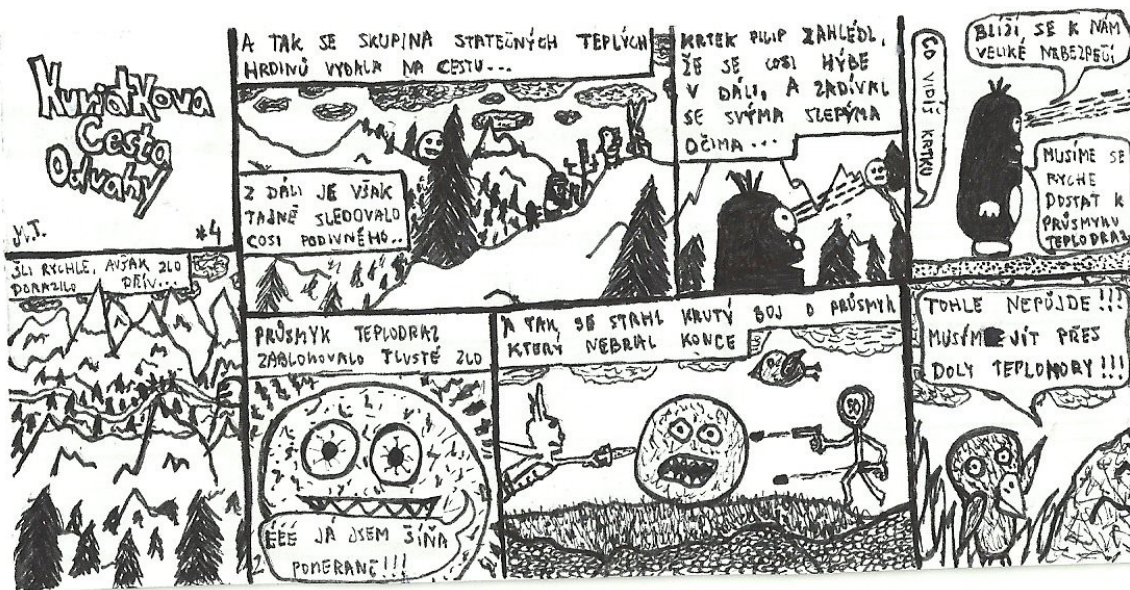 Kuriátkova
Cesta
Odvahy
M.T.
#4
A TAK SE SKUPINA STATEČNÝCH TEPLÝCH
HRDINŮ VYDALA NA CESTU...
Z DÁLI JE VŠAK
TAJNĚ SLEDOVALO
COSI PODIVNÉHO..
KRTEK FILIP ZAHLÉDL,
ŽE SE COSI HÝBE
V DÁLI, A ZADÍVAL
SE SVÝMA SLEPÝMA
OČIMA...
CO VIDÍŠ KRTKU
BLÍŽÍ SE K NÁM
VELIKÉ NEBEZPEČÍ
MUSÍME SE
RYCHE
DOSTAT K
PRŮSMYKU
TEPLODRAZ
ŠLI RYCHLE, AVŠAK ZLO
DORAZILO DŘÍV...
PRŮSMYK TEPLODRAZ
ZABLOKOVALO TLUSTÉ ZLO
ÉÉÉ JÁ JSEM ŠÍŇA
POMERANČ!!!
A TAK, SE STRHL KRUTÝ BOJ O PRŮSMYK
KTERÝ NEBRAL KONCE
50
TOHLE NEPŮJDE!!!
MUSÝME JÍT PŘES
DOLY TEPLOMORY!!!